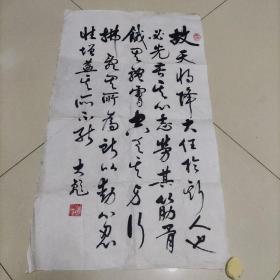 故天将降大任於斯人也
必先苦其心志劳其筋骨
餓其體膚空乏其身行
拂亂其所為所以動心忍
性增益其所不能